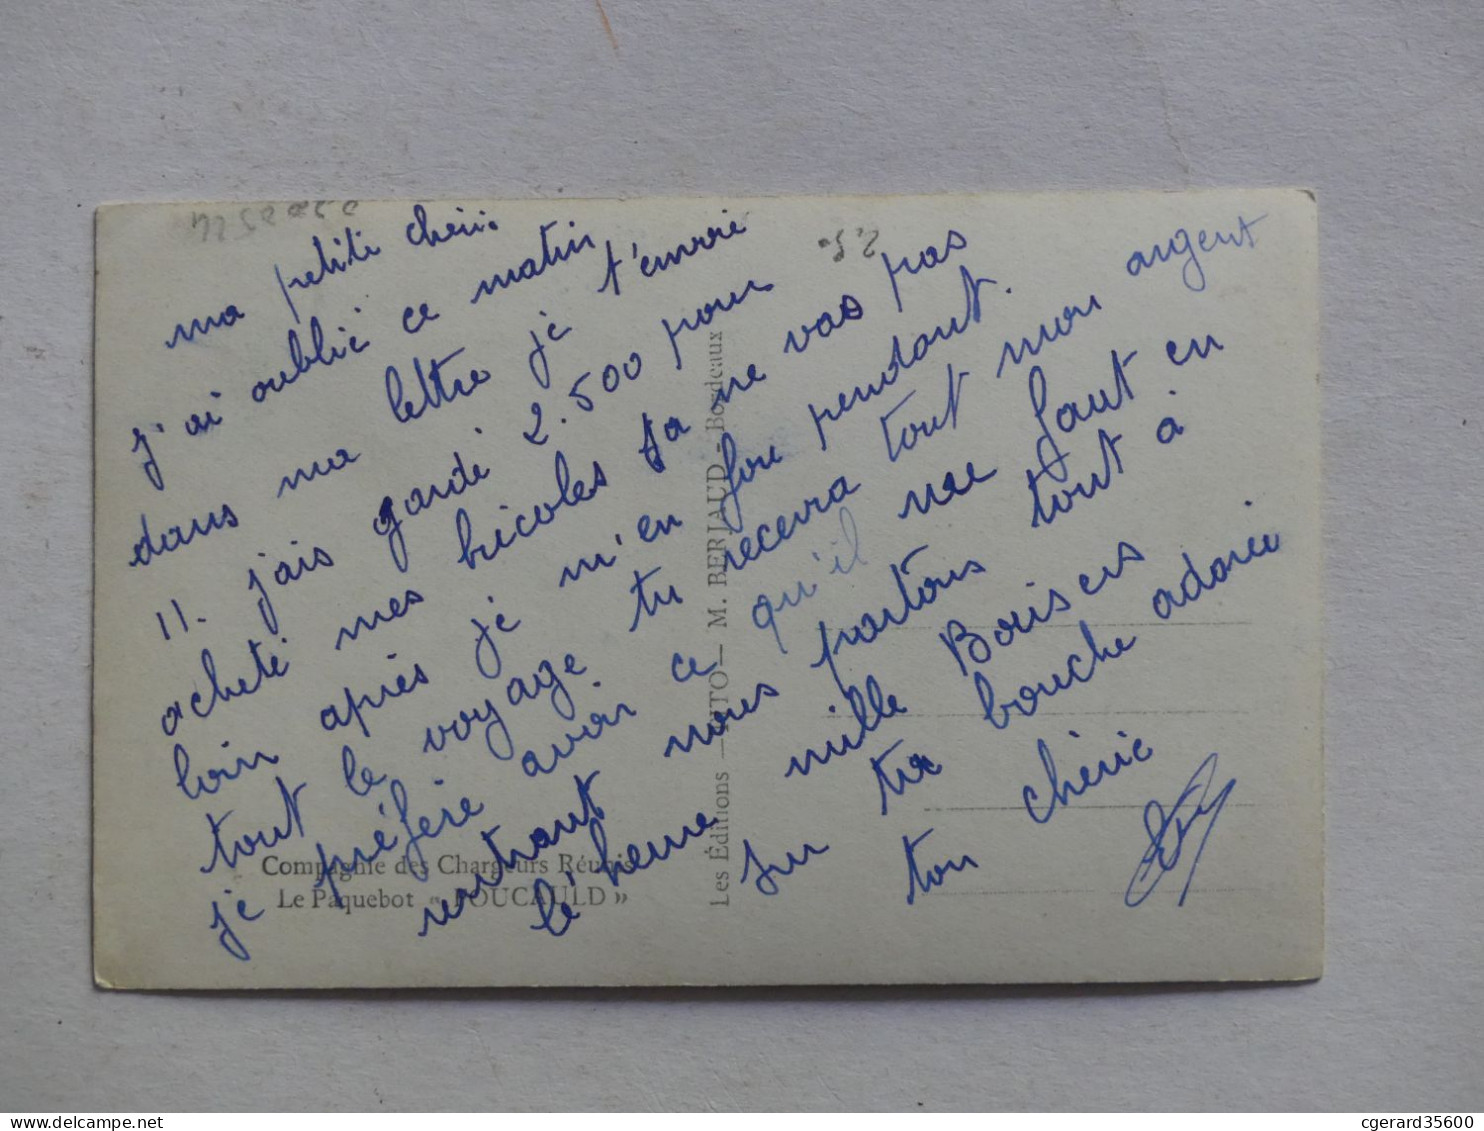 ma petite cheri.
j'ai oublié ce matin
dans ma lettre je t'envoie
11. jais gardé 2.500 pour
acheté mes bricoles sa ne vas pas
loin après je m'en fou pendant.
tout le voyage tu recevra tout mon argent
je préfère avoir ce qu'il me faut en
rentrant nous partons tout à
lé'heure mille Boisers
sur ta bouche adorée
ton chérie
Compagnie des Chargeurs Réunis
Le Paquebot « FOUCAULD »
Les Éditions — TITO — M. BERJAUD - Bordeaux
cgerard35600